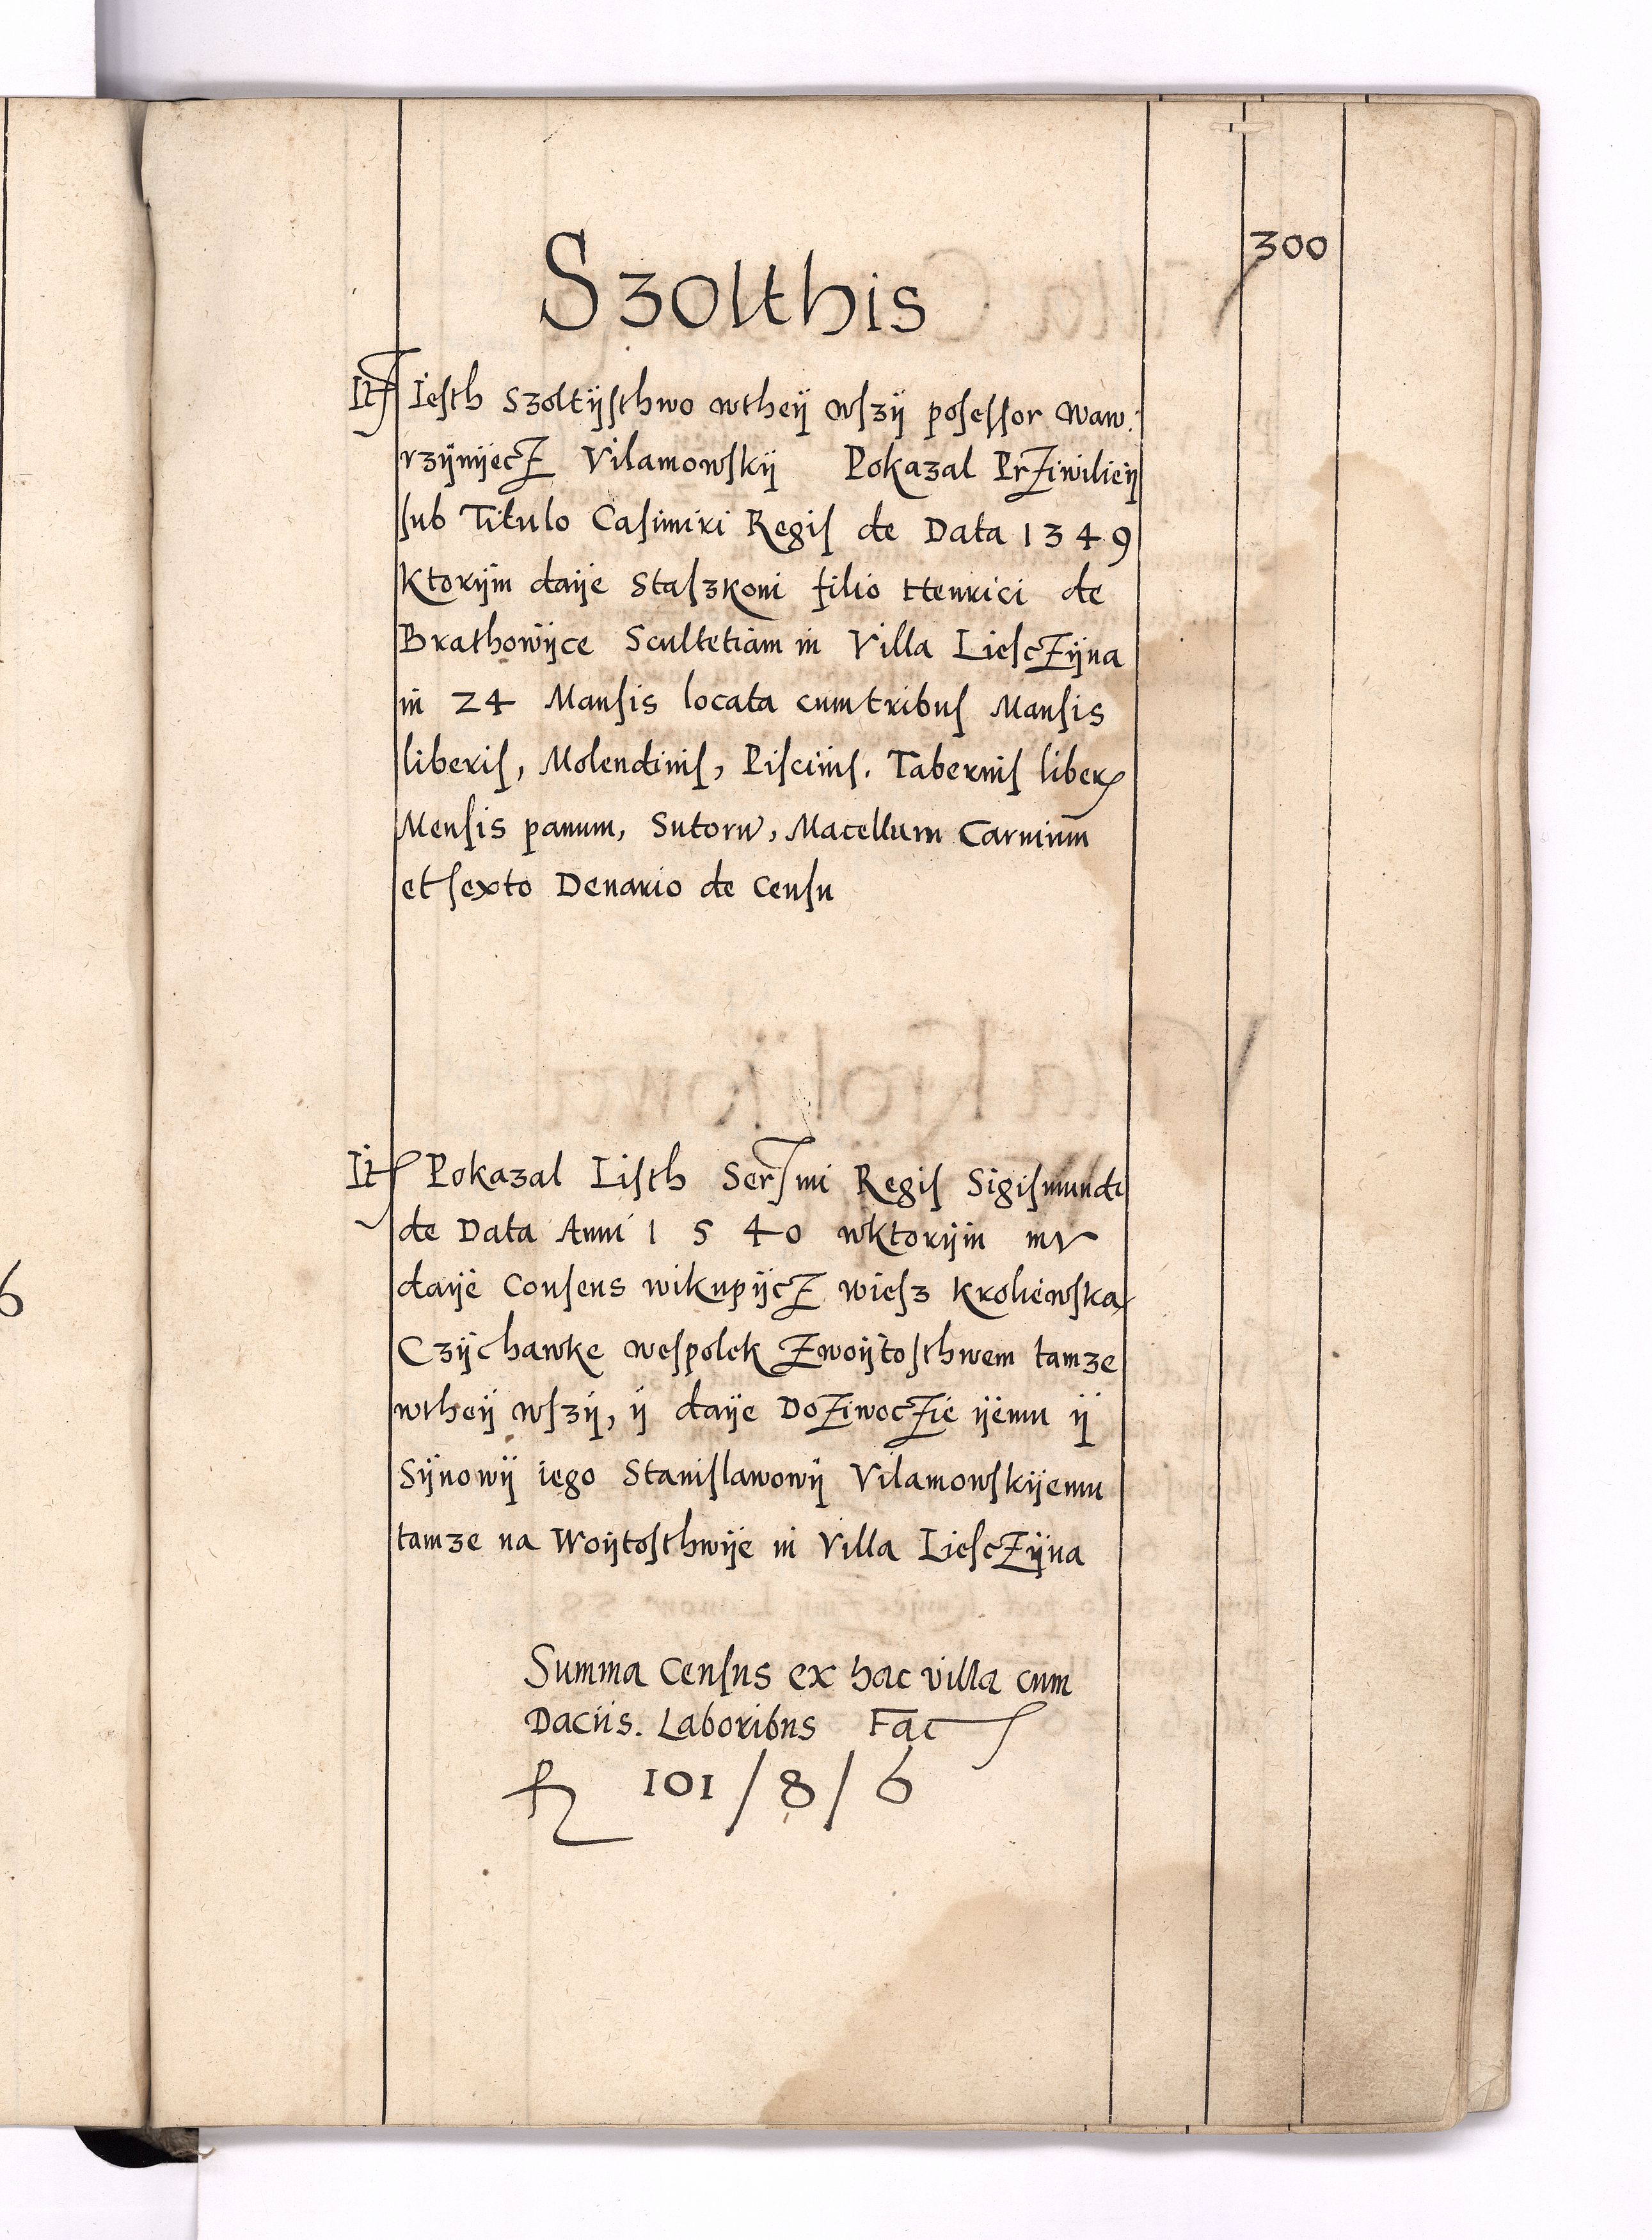 300
Szolthis
It Iesth Szoltijsthwo wtheij wszij posessor Waw:
rzijnijecz Vilamowskij Pokazal Prziwilieij
sub Titulo Casimiri Regis de Data 1349
Ktorijm daije Staszkoni filio Henrici de
Brathowijce Scultetiam in Villa Liesczijna
in 24 Mansis locata cum tribus Mansis
liberis, Molendinis, Piscinis. Tabernis liber
Mensis panum, Sutoru, Macellum Carnium
et sexto Denario de Censu
It Pokazal Listh Sermi Regis Sigismundi
de Data Anni 1540 wktorijm mv
daije Consens wikupijcz wiesz Kroliewska
Czijchawke wespolek Zwoijtosthwem tamze
wtheij wszij, ij daije Doziwoczie ijemu ij
Sijnowij iego Stanislawowij Vilamowskijemu
tamze na Woijtosthwije in Villa Liesczijna
Summa Census ex hac villa cum
Daciis. Laboribus Fac
101/8/6
6